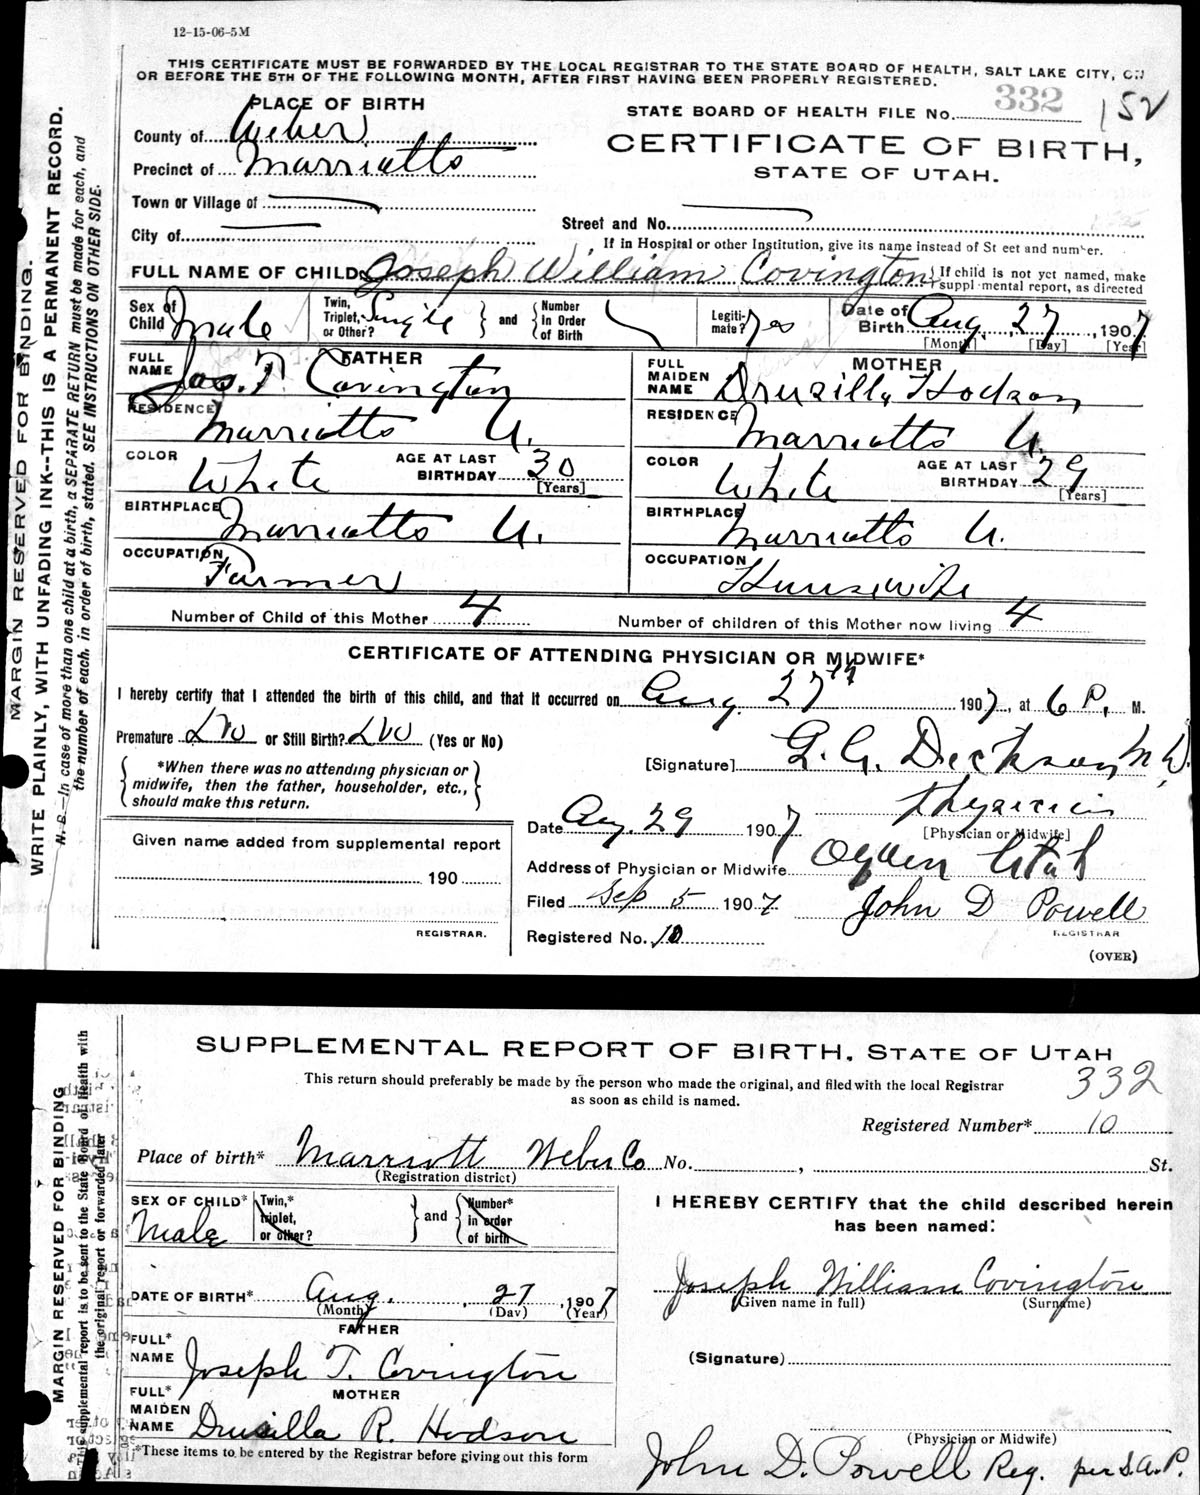 12-15-06-5M
THIS CERTIFICATE MUST BE FORWARDED BY THE LOCAL REGISTRAR TO THE STATE BOARD OF HEALTH, SALT LAKE CITY, ON
OR BEFORE THE 5TH OF THE FOLLOWING MONTH, AFTER FIRST HAVING BEEN PROPERLY REGISTERED.
MARGIN RESERVED FOR BINDING.
WRITE PLAINLY, WITH UNFADING INK--THIS IS A PERMANENT RECORD.
N. B.—In case of more than one child at a birth, a SEPARATE RETURN must be made for each, and
the number of each, in order of birth, stated. SEE INSTRUCTIONS ON OTHER SIDE.
PLACE OF BIRTH
County of Weber
Precinct of Marriotts
Town or Village of
City of
STATE BOARD OF HEALTH FILE No. 332 152
CERTIFICATE OF BIRTH,
STATE OF UTAH.
Street and No.
If in Hospital or other Institution, give its name instead of St eet and number.
FULL NAME OF CHILD Joseph William Covington If child is not yet named, make
suppl mental report, as directed
Sex of Child Male Twin, Triplet, or Other? Single and Number In Order of Birth Legiti-mate? Yes Date of Birth Aug. 27, 1907
[Month] [Day] [Year]
FATHER
FULL NAME Jos. T. Covington
RESIDENCE Marriotts U.
COLOR White AGE AT LAST BIRTHDAY 30
[Years]
BIRTHPLACE Marriotts U.
OCCUPATION Farmer
MOTHER
FULL MAIDEN NAME Druzilla Hodson
RESIDENCE Marriotts U.
COLOR White AGE AT LAST BIRTHDAY 29
[Years]
BIRTHPLACE Marriotts U.
OCCUPATION Housewife
Number of Child of this Mother 4 Number of children of this Mother now living 4
CERTIFICATE OF ATTENDING PHYSICIAN OR MIDWIFE*
I hereby certify that I attended the birth of this child, and that it occurred on Aug. 27th 1907, at 6 P. M.
Premature No or Still Birth? No (Yes or No)
*When there was no attending physician or
midwife, then the father, householder, etc.,
should make this return.
[Signature] G. G. Dickson M. D.
Physician
[Physician or Midwife]
Date Aug. 29 1907
Address of Physician or Midwife Ogden Utah
Filed Sep 5 1907 John D Powell
REGISTRAR
Registered No. 10
(OVER)
Given name added from supplemental report
190
REGISTRAR.
SUPPLEMENTAL REPORT OF BIRTH, STATE OF UTAH
This return should preferably be made by the person who made the original, and filed with the local Registrar
as soon as child is named.
332
Registered Number* 10
MARGIN RESERVED FOR BINDING
This supplemental report is to be sent to the State Board of Health with
the original report or forwarded later
Place of birth* Marriott Weber Co No. , St.
(Registration district)
SEX OF CHILD* Male Twin,* triplet, or other? and Number* in order of birth
DATE OF BIRTH* Aug. , 27 , 1907
(Month) (Day) (Year)
FATHER
FULL* NAME Joseph T. Covington
MOTHER
FULL* MAIDEN NAME Drusilla R. Hodson
*These items to be entered by the Registrar before giving out this form
I HEREBY CERTIFY that the child described herein
has been named:
Joseph William Covington
(Given name in full) (Surname)
(Signature)
(Physician or Midwife)
John D. Powell Reg. per D.A.P.